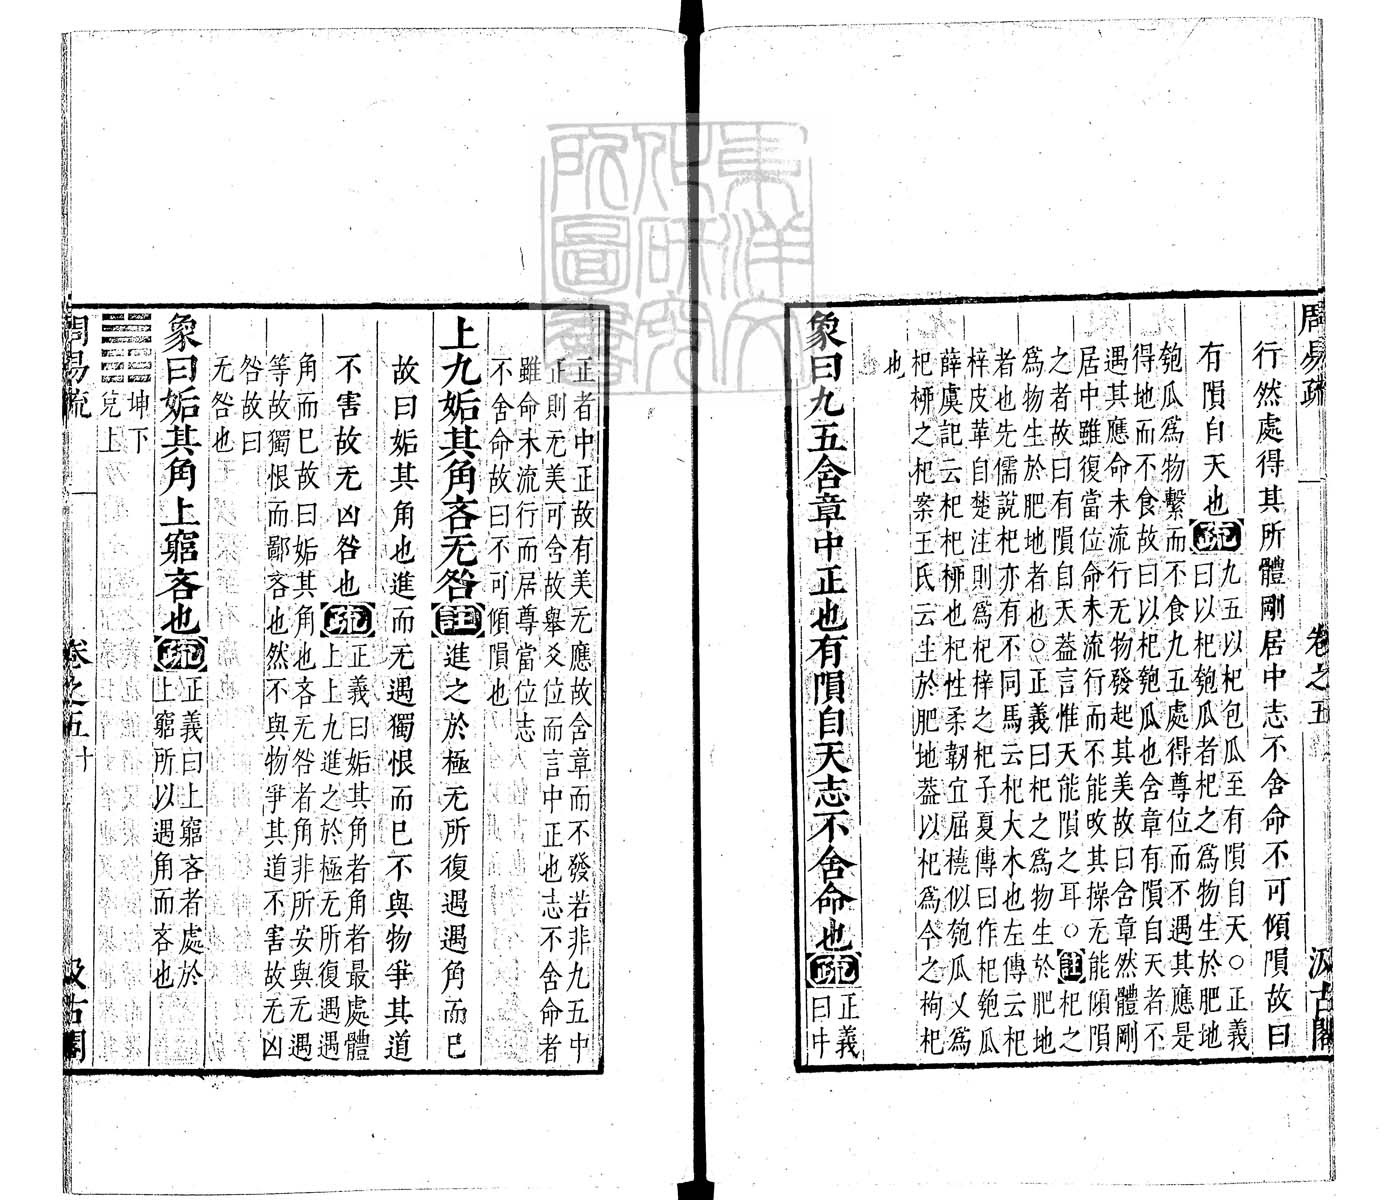 周易疏 卷之五 汲古閣
行然處得其所體剛居中志不舍命不可傾隕故曰
有隕自天也疏九五以杞包瓜至有隕自天○正義
曰以杞匏瓜者杞之爲物生於肥地
匏瓜爲物繫而不食九五處得尊位而不遇其應是
得地而不食故曰以杞匏瓜也含章有隕自天者不
遇其應命未流行无物發起其美故曰含章然體剛
居中雖復當位命未流行而不能攺其操无能傾隕
之者故曰有隕自天葢言惟天能隕之耳○註杞之
爲物生於肥地者也○正義曰杞之爲物生於肥地
者也先儒說杞亦有不同馬云杞大木也左傳云杞
梓皮革自楚注則爲杞梓之杞子夏傳曰作杞匏瓜
薛虞記云杞杞栁也杞性柔韌宜屈橈似匏瓜乂爲
杞栁之杞案王氏云生於肥地葢以杞爲今之枸杞
也
象曰九五含章中正也有隕自天志不舍命也疏正義
曰中
正者中正故有美无應故含章而不發若非九五中
正則无美可含故舉爻位而言中正也志不舍命者
雖命未流行而居尊當位志
不舍命故曰不可傾隕也
上九姤其角吝无咎註進之於極无所復遇遇角而已
故曰姤其角也進而无遇獨恨而已不與物爭其道
不害故无凶咎也疏正義曰姤其角者角者最處體
上上九進之於極无所復遇遇
角而已故曰姤其角也吝无咎者角非所安與无遇
等故獨恨而鄙吝也然不與物爭其道不害故无凶
咎故曰
无咎也
象曰姤其角上窮吝也疏正義曰上窮吝者處於
上窮所以遇角而吝也
䷬坤下
兌上
周易疏 卷之五 十 汲古閣
東洋文化研究所圖書